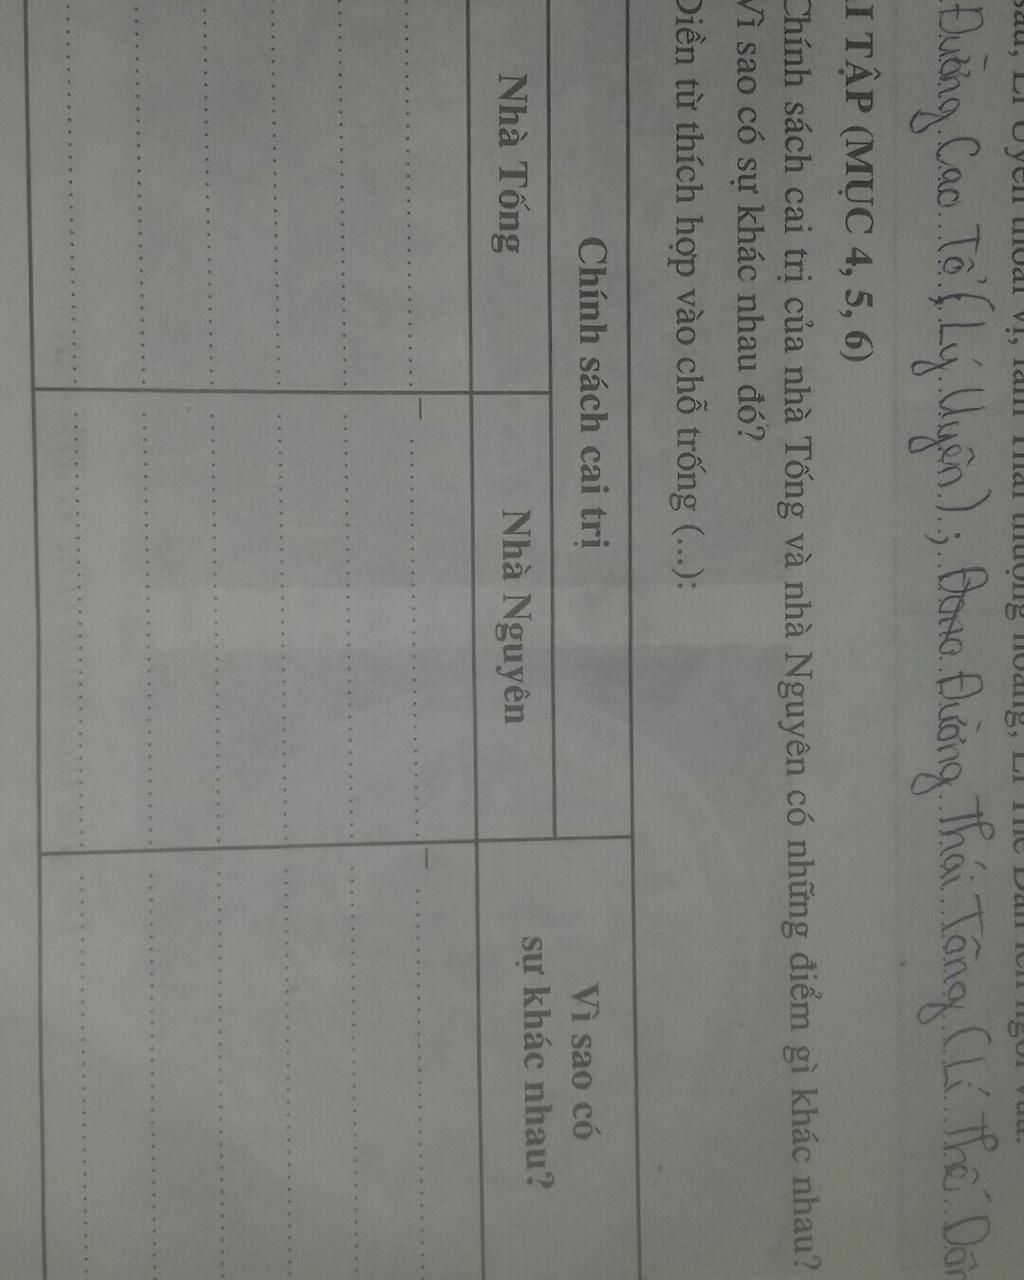 sau, Lí Uyên thoái vị, làm Thái thượng hoàng, Lí Thế Dân lên ngôi vua.
Đường Cao Tổ (Lý Uyên); Đường Thái Tông (Lí Thế Dân
ÀI TẬP (MỤC 4, 5, 6)
Chính sách cai trị của nhà Tống và nhà Nguyên có những điểm gì khác nhau?
Vì sao có sự khác nhau đó?
Điền từ thích hợp vào chỗ trống (...):
Chính sách cai trị
Vì sao có
sự khác nhau?
Nhà Tống
Nhà Nguyên